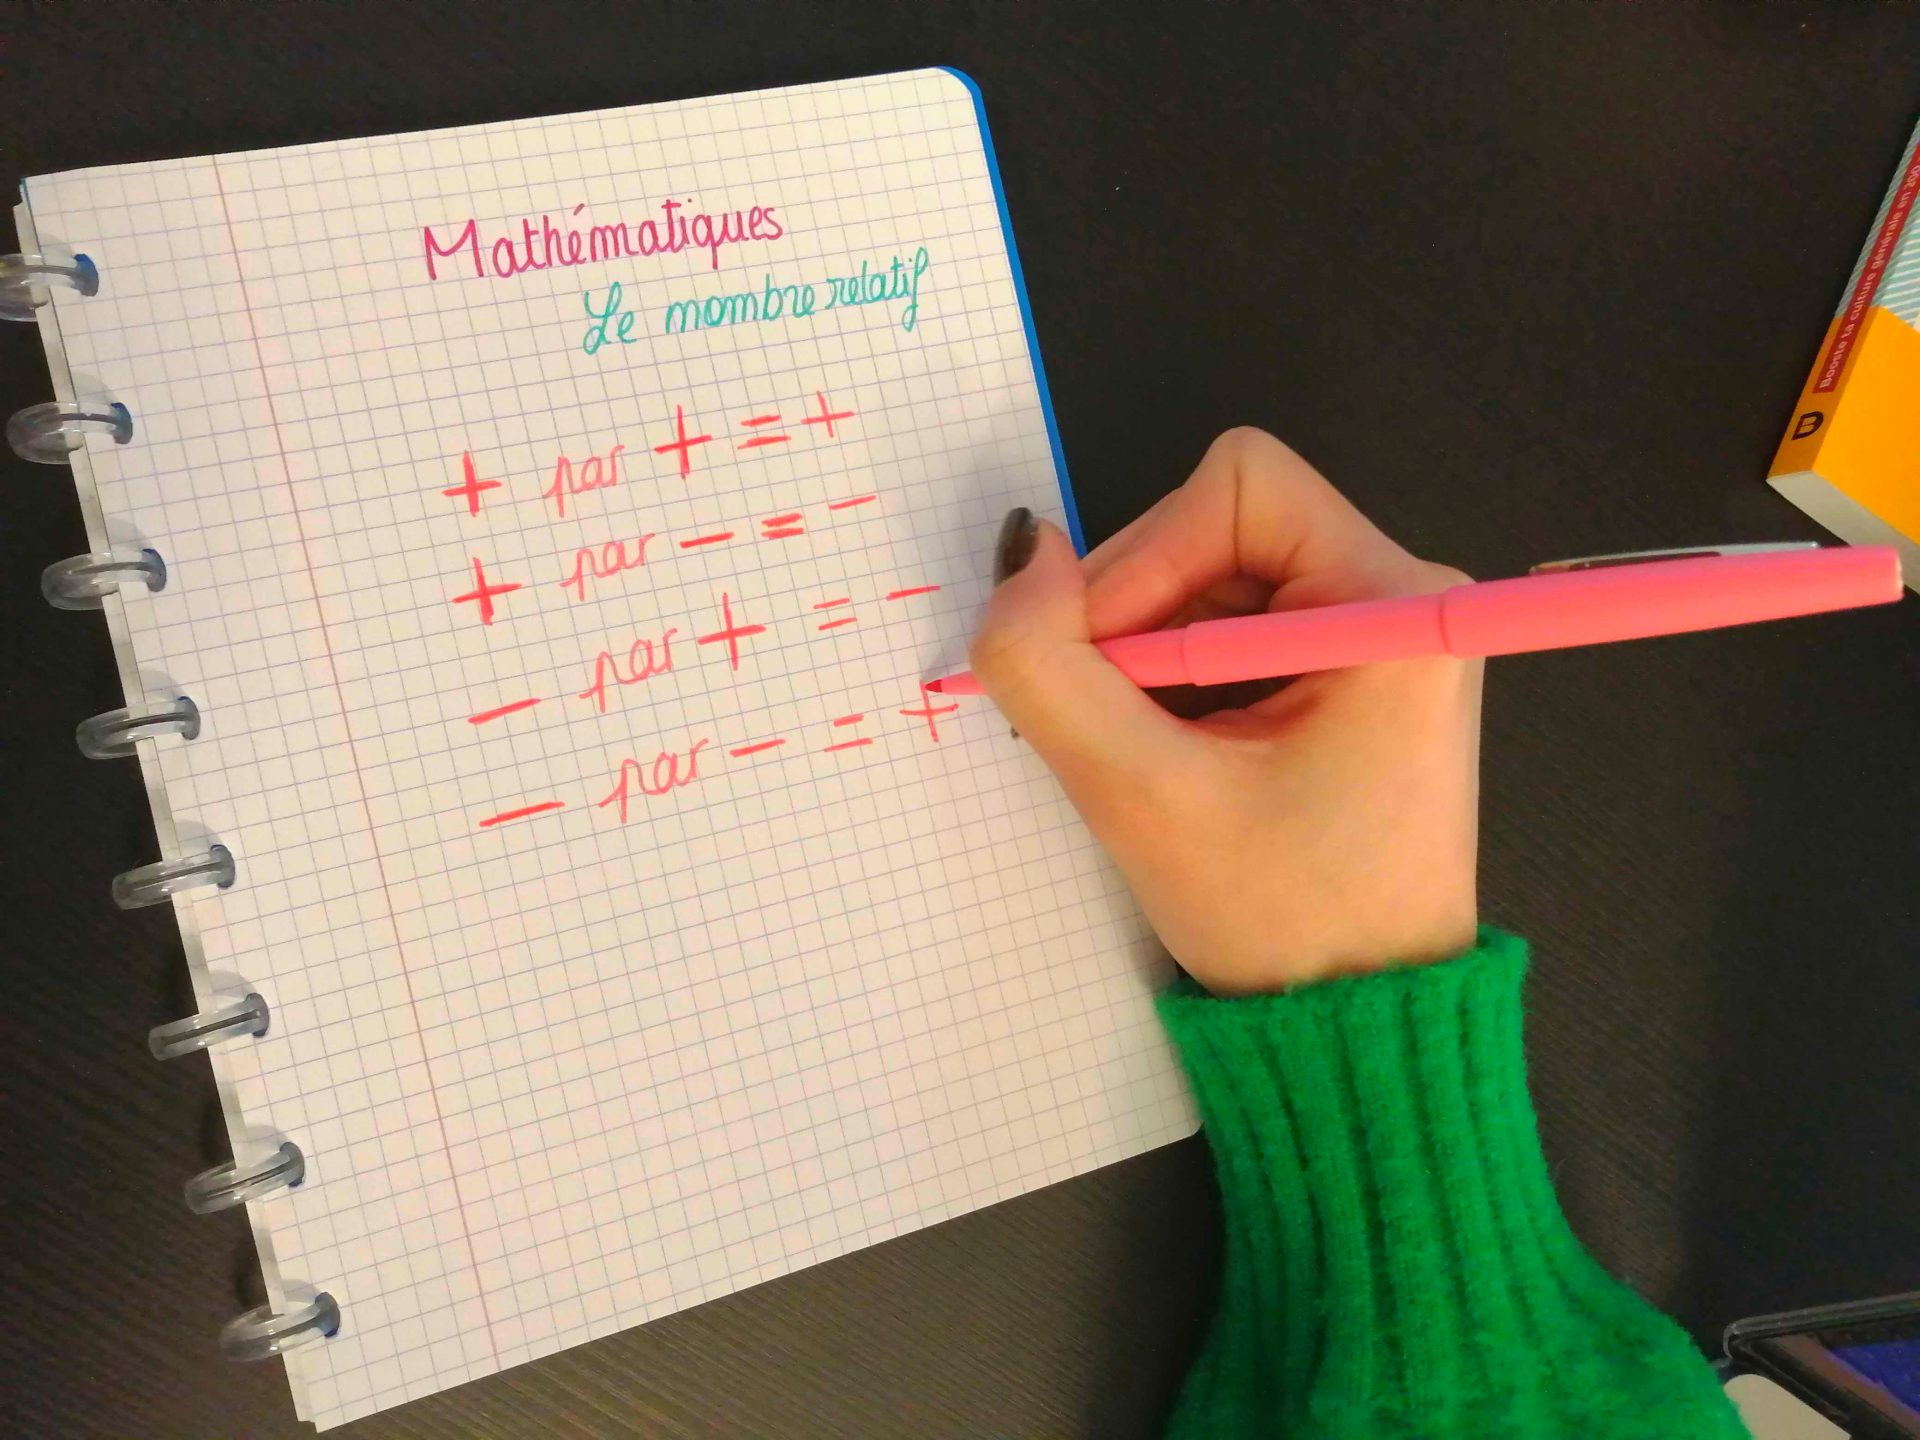 Mathématiques
Le nombre relatif
+ par + = +
+ par - = -
- par + = -
- par - = +
Booste ta culture générale en 200
B